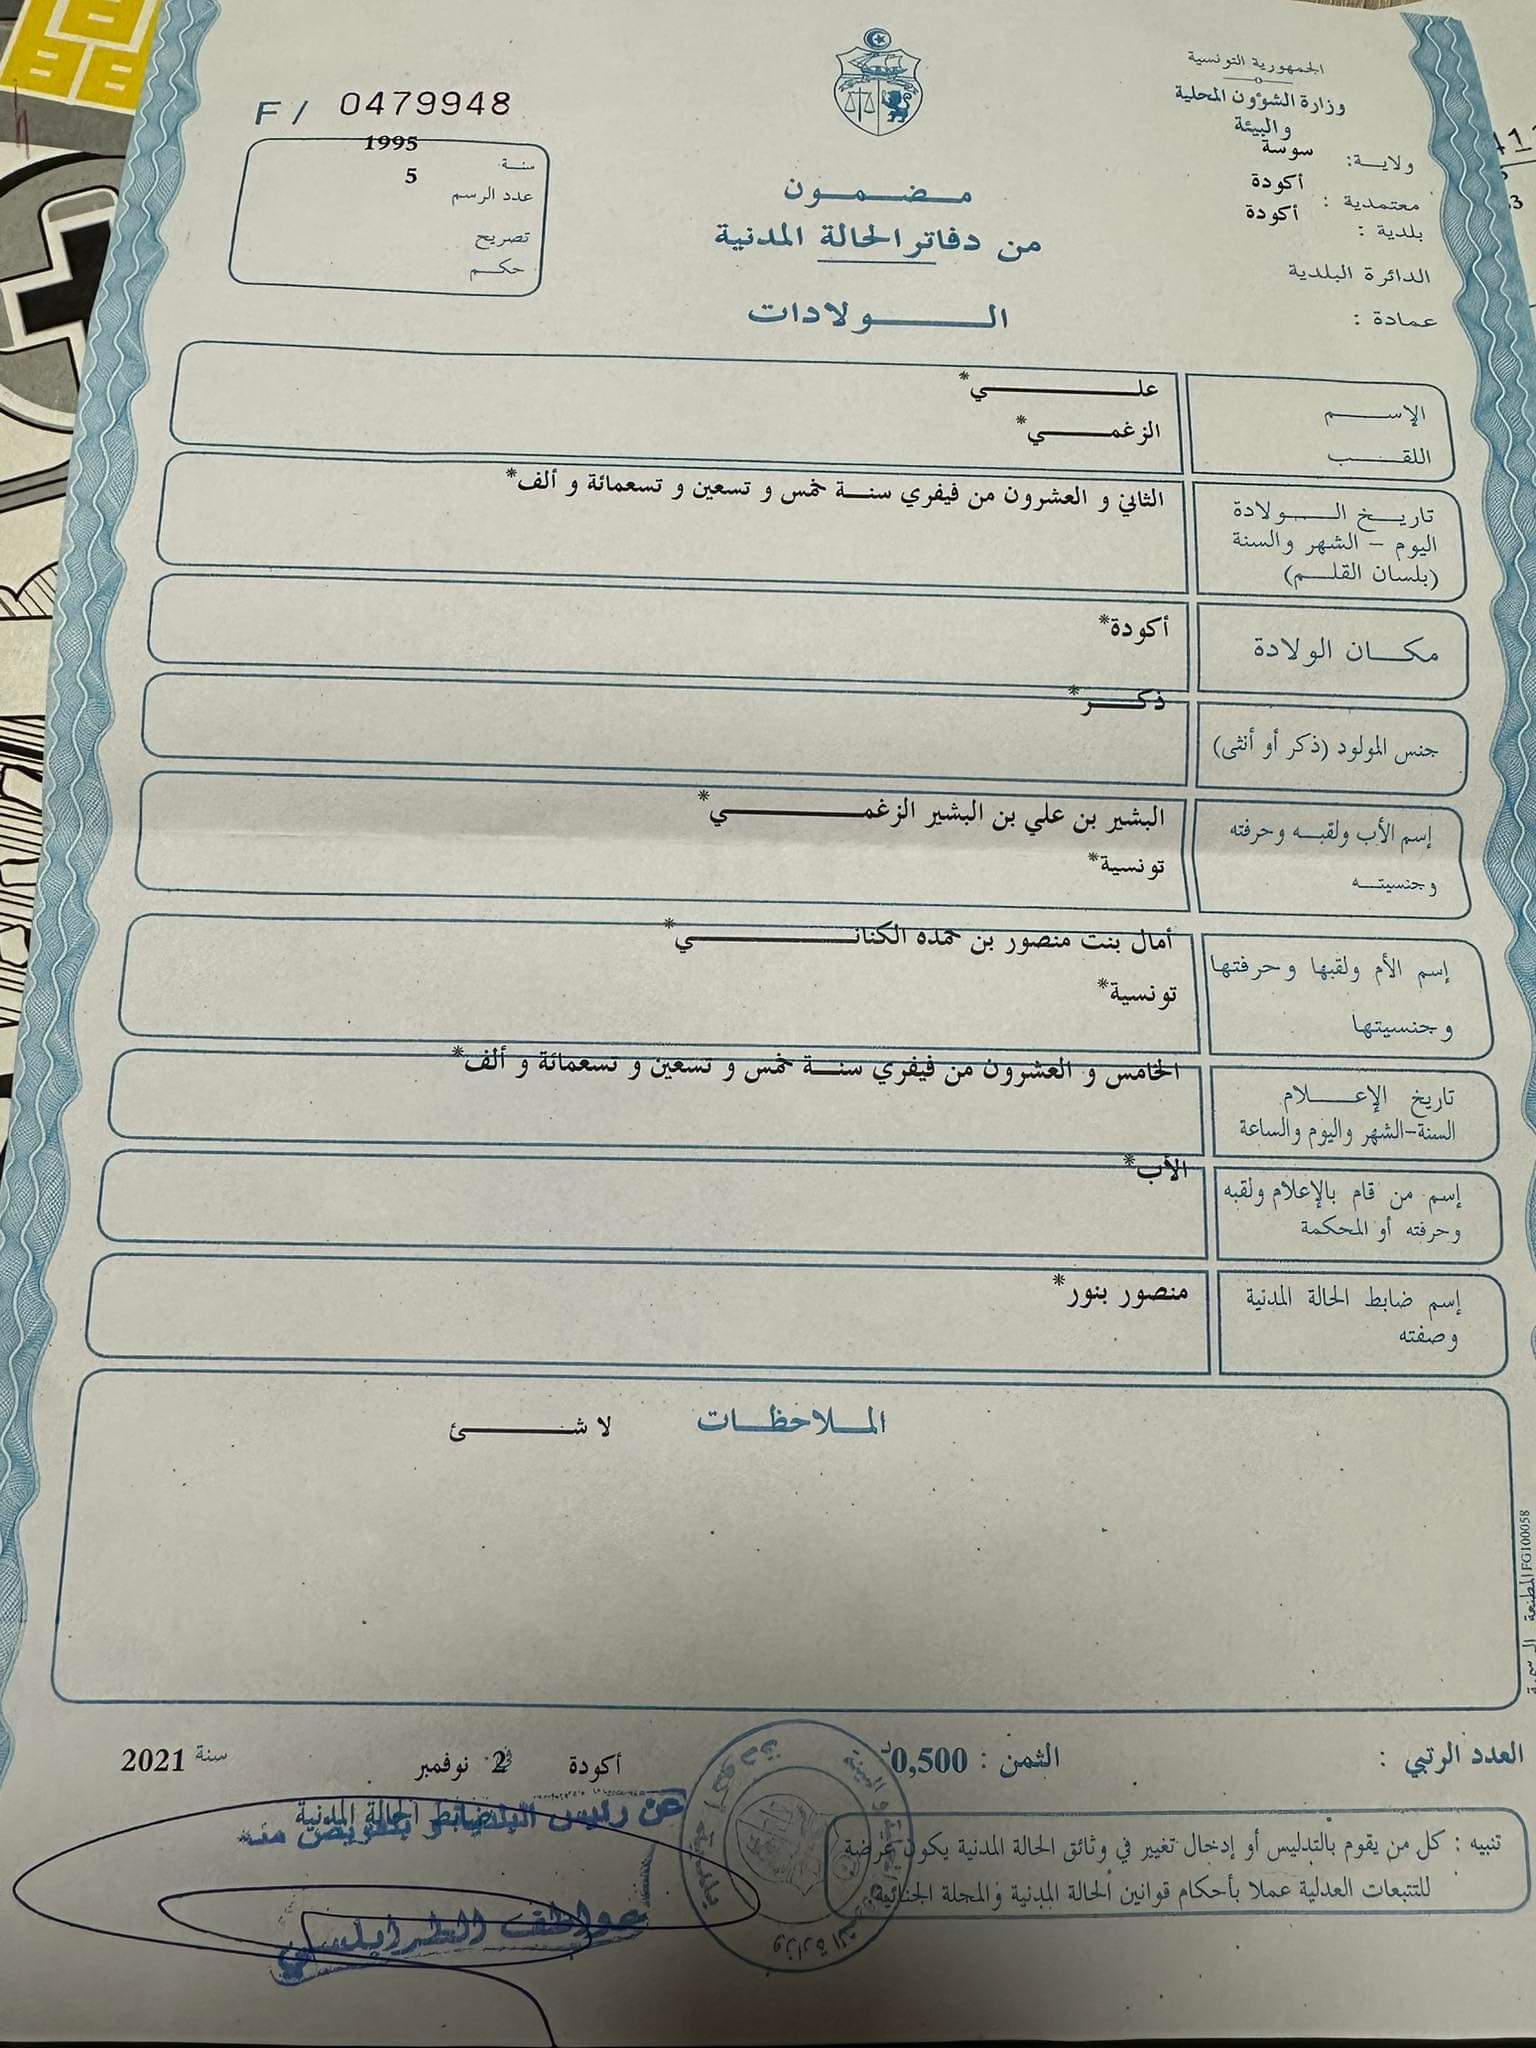 الجمهورية التونسية
وزارة الشؤون المحلية
والبيئة
ولاية: سوسة
معتمدية : أكودة
بلدية : أكودة
الدائرة البلدية
عمادة :
F/ 0479948
سنة 1995
عدد الرسم 5
تصريح
حكم
مضمون
من دفاتر الحالة المدنية
الولادات
الإسم علي*
اللقب الزغمي*
تاريخ الولادة الثاني و العشرون من فيفري سنة خمس و تسعين و تسعمائة و ألف*
اليوم - الشهر والسنة
(بلسان القلم)
مكان الولادة أكودة*
جنس المولود (ذكر أو أنثى) ذكر*
إسم الأب ولقبه وحرفته البشير بن علي بن البشير الزغمي*
وجنسيته تونسية*
إسم الأم ولقبها وحرفتها أمال بنت منصور بن حمده الكناني*
وجنسيتها تونسية*
تاريخ الإعلام الخامس و العشرون من فيفري سنة خمس و تسعين و تسعمائة و ألف*
السنة-الشهر واليوم والساعة
إسم من قام بالإعلام ولقبه الأب*
وحرفته أو المحكمة
إسم ضابط الحالة المدنية منصور بنور*
وصفته
الملاحظات لا شئ
المطبعة الرسمية FG100058
العدد الرتبي :
الثمن : 0,500د
أكودة في 2 نوفمبر سنة 2021
ضابط الحالة المدنية
عن رئيس البلدية و بتفويض منه
عواطف الطرابلسي
تنبيه : كل من يقوم بالتدليس أو إدخال تغيير في وثائق الحالة المدنية يكون عرضة
للتتبعات العدلية عملا بأحكام قوانين الحالة المدنية والمجلة الجنائية